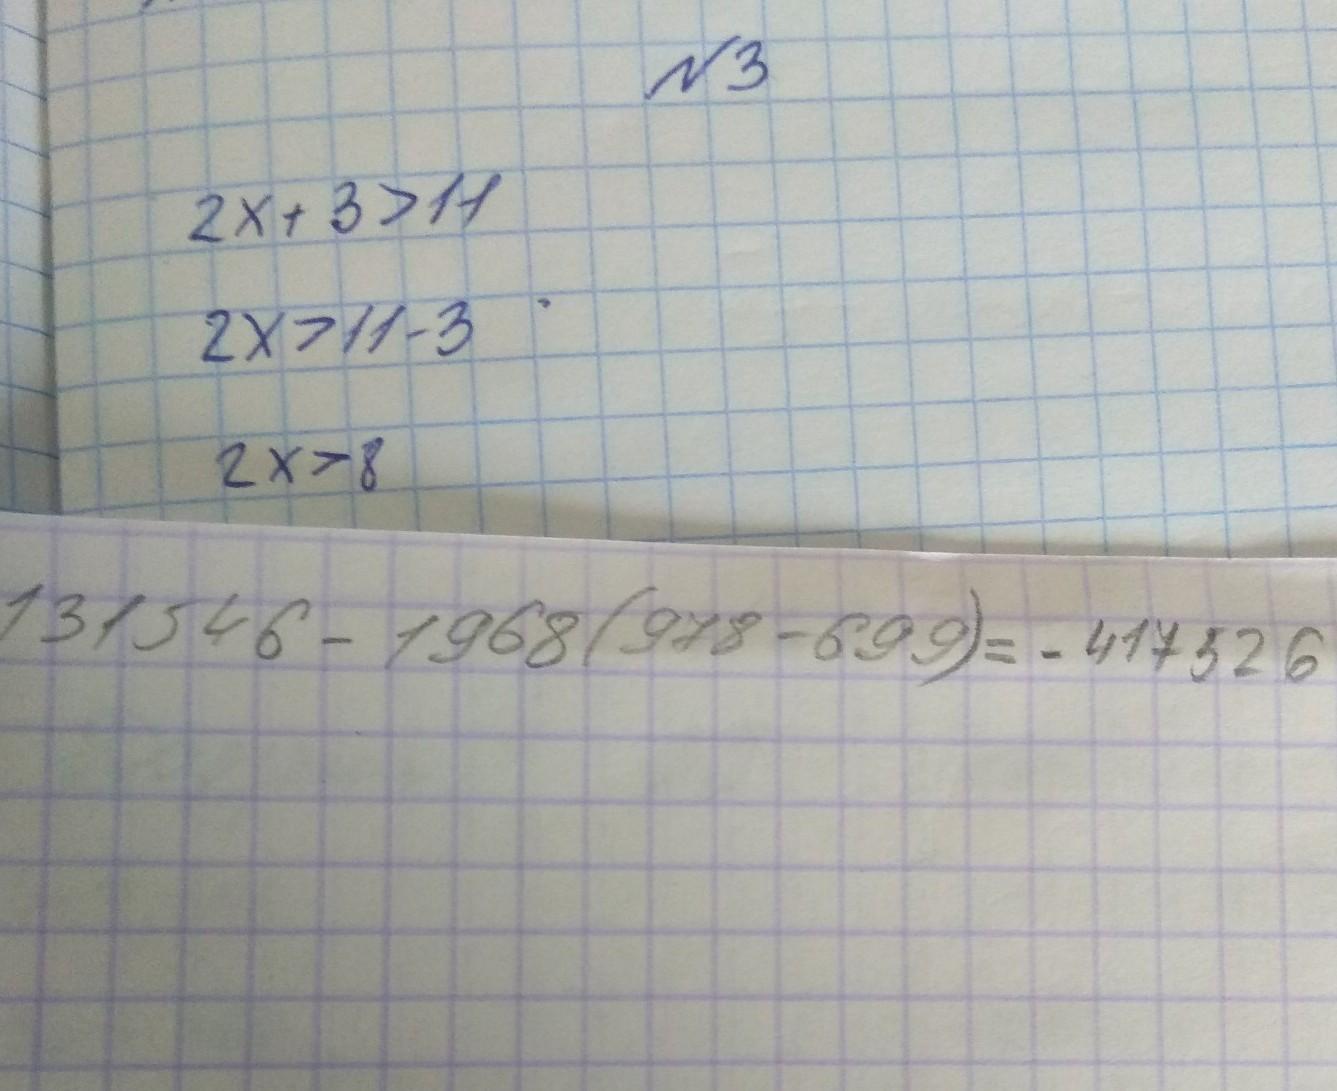 №3
2x+3>11
2x>11-3
2x>8
131546-1968(978-699)=-417526